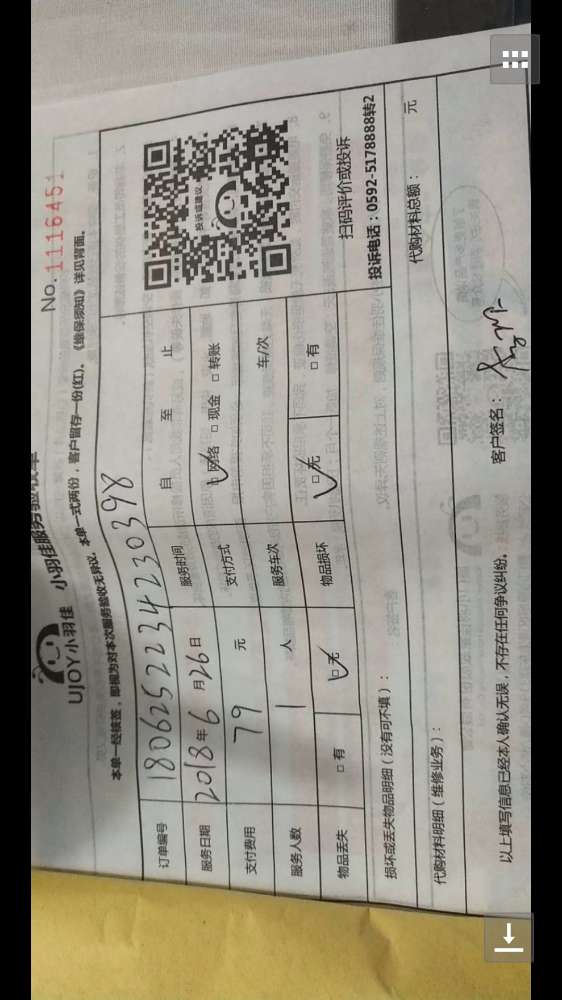 UJOY小羽佳 小羽佳服务验收单
No. 1116451
本单一经核签，即视为对本次服务验收无异议，本单一式两份，客户留存一份(红)。《维保须知》详见背面。
订单编号 180625223423 0398
服务日期 2018年6月26日 服务时间 自 至 止
支付费用 79 元 支付方式 □网络 □现金 □转账
服务人数 1 人 服务车次 车/次
物品丢失 □有 □无 物品损坏 □无 □有
投诉或建议
扫码评价或投诉
投诉电话：0592-5178888转2
损坏或丢失物品明细（没有可不填）：
代购材料明细（维修业务）： 代购材料总额： 元
以上填写信息已经本人确认无误，不存在任何争议纠纷。 客户签名：